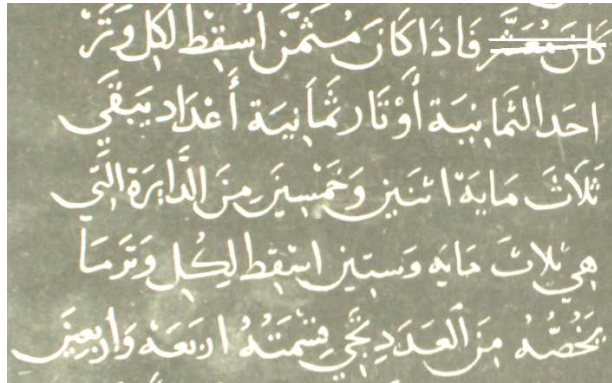 كَانَ مُعَشَّر فَاِذَا كَانَ مُثَمَّن اُسْقِطْ لِكُلِّ وَتَرْ
احَد الثَمَانِيَة أَوْتَار ثَمَانِيَة أَعْدَاد يَبْقَى
ثَلَاثَ مَايَةْ اثنَينِ وَخَمْسِينَ مِنَ الدَّايرَة التَّي
هِي ثلاث مَايه وَستِين اسقط لِكُل وَتَر مَا
يَخُصُّهُ مِنَ العَدَدِ تجي قسْمَتُهُ اربَعَة وَأَربعِينَ